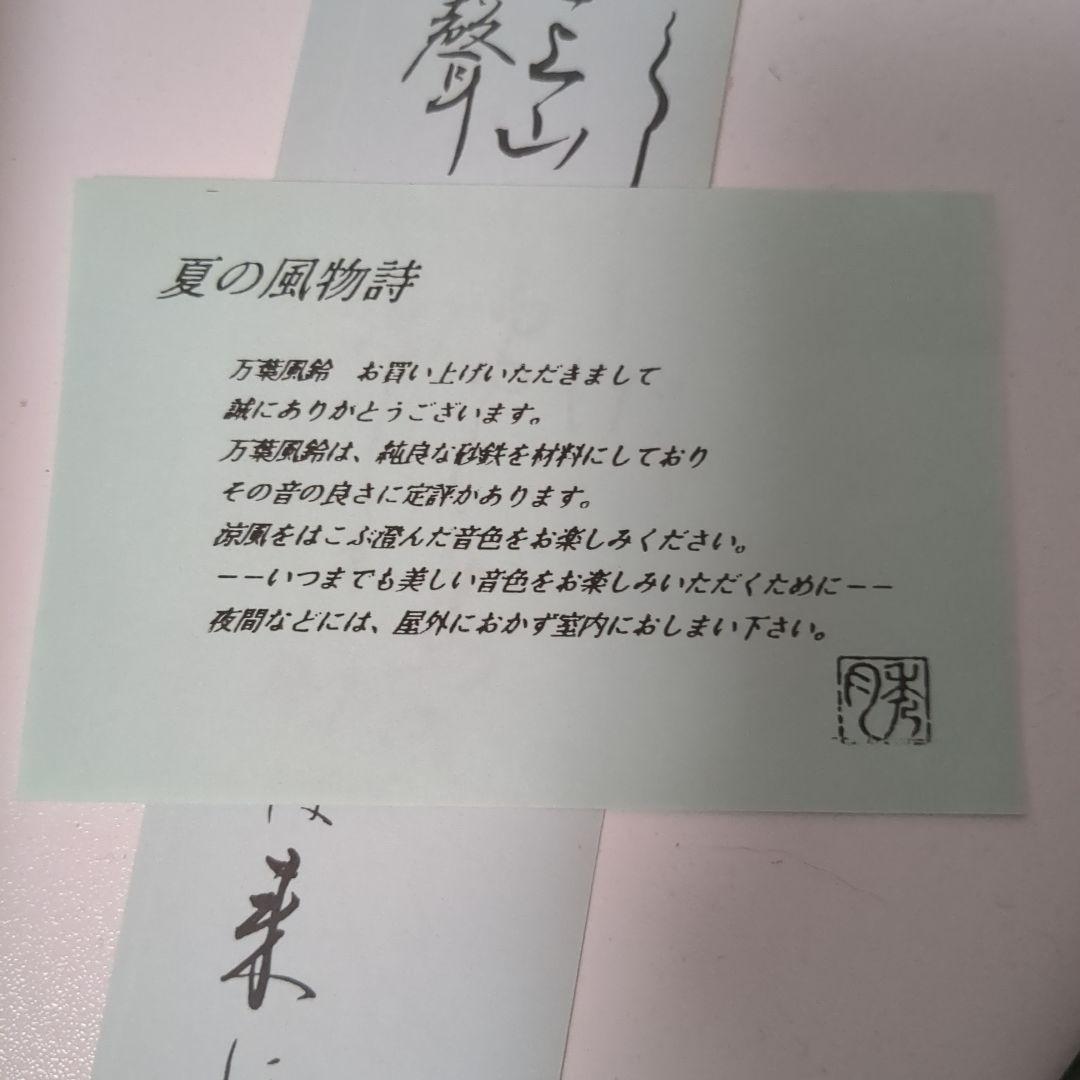 聲
上山
夏の風物詩
万葉風鈴　お買い上げいただきまして
誠にありがとうございます。
万葉風鈴は、純良な砂鉄を材料にしており
その音の良さに定評があります。
涼風をはこぶ澄んだ音色をお楽しみください。
――いつまでも美しい音色をお楽しみいただくために――
夜間などには、屋外におかず室内におしまい下さい。